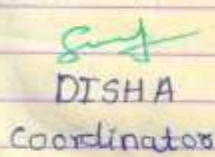 DISHA
Coordinator